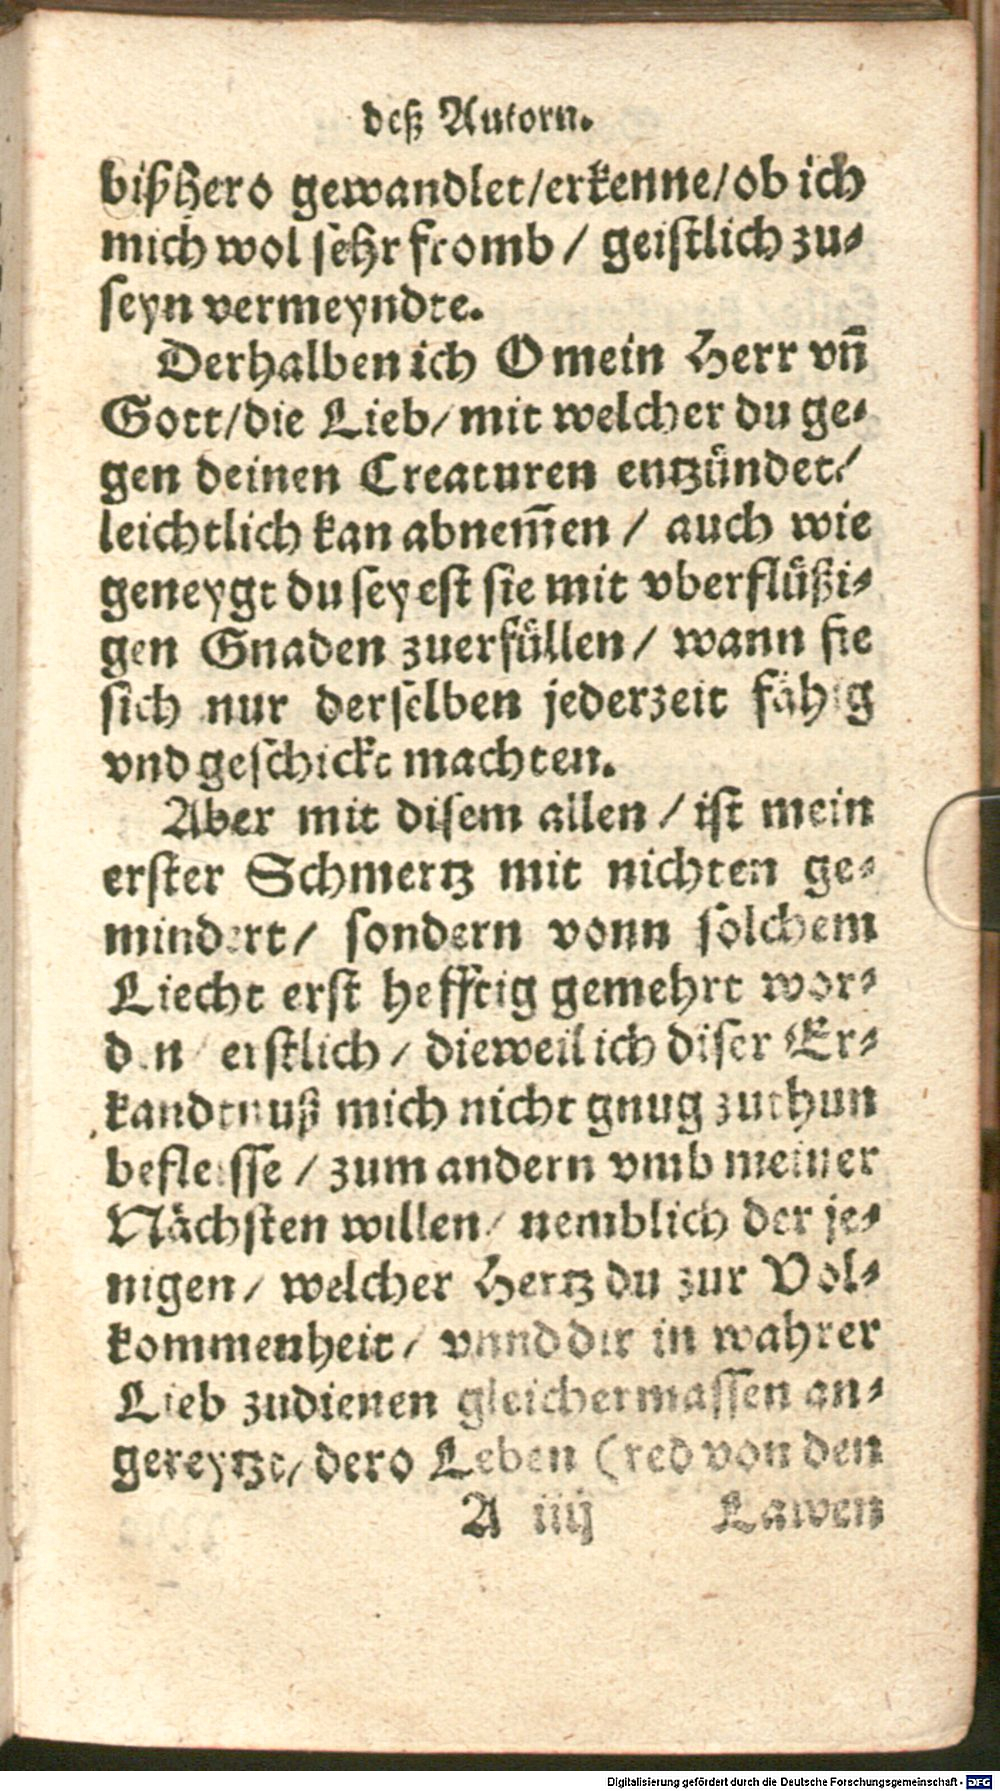 deß Autorn.
bißhero gewandlet/erkenne/ob ich
mich wol sehr fromb / geistlich zu-
seyn vermeyndte.
Derhalben ich O mein Herr vn̄
Gott/die Lieb/mit welcher du ge-
gen deinen Creaturen entzündet/
leichtlich kan abnem̄en / auch wie
geneygt du seyest sie mit vberflüßi-
gen Gnaden zuerfüllen / wann sie
sich nur derselben jederzeit fähig
vnd geschickt machten.
Aber mit disem allen / ist mein
erster Schmertz mit nichten ge-
mindert/ sondern vonn solchem
Liecht erst hefftig gemehrt wor-
den/ erstlich / dieweil ich diser Er-
kandtnuß mich nicht gnug zuthun
befleisse / zum andern vmb meiner
Nächsten willen/ nemblich der je-
nigen/ welcher Hertz du zur Vol-
kommenheit/ vnnd dir in wahrer
Lieb zudienen gleichermassen an-
gereytzt/ dero Leben (red von den
A iiij Lawen
Digitalisierung gefördert durch die Deutsche Forschungsgemeinschaft - DFG